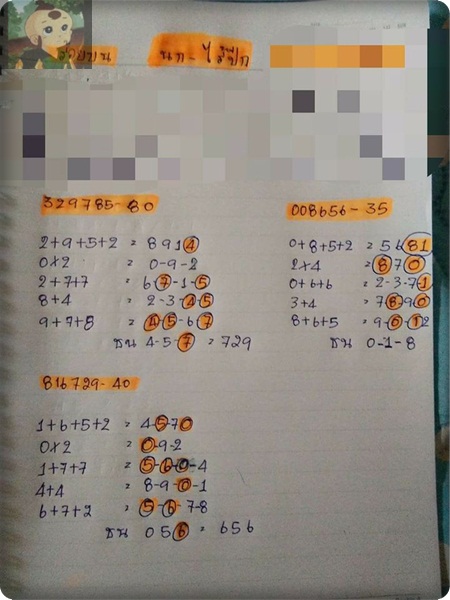 นก-ไร้ปีก
329785-80
2+9+5+2 = 8914
0x2 = 0-9-2
2+7+7 = 6-7-1-5
8+4 = 2-3-4-5
9+7+8 = 4-5-6-7
ชน 4-5-7 = 729
008656-35
0+8+5+2 = 5681
2x4 = 870
0+6+6 = 2-3-7-1
3+4 = 78-90
8+6+5 = 9-0-12
ชน 0-1-8
816729-40
1+6+5+2 = 4-5-70
0x2 = 0-9-2
1+7+7 = 5-6-0-4
4+4 = 8-9-0-1
6+7+2 = 5-6-7-8
ชน 056 = 656